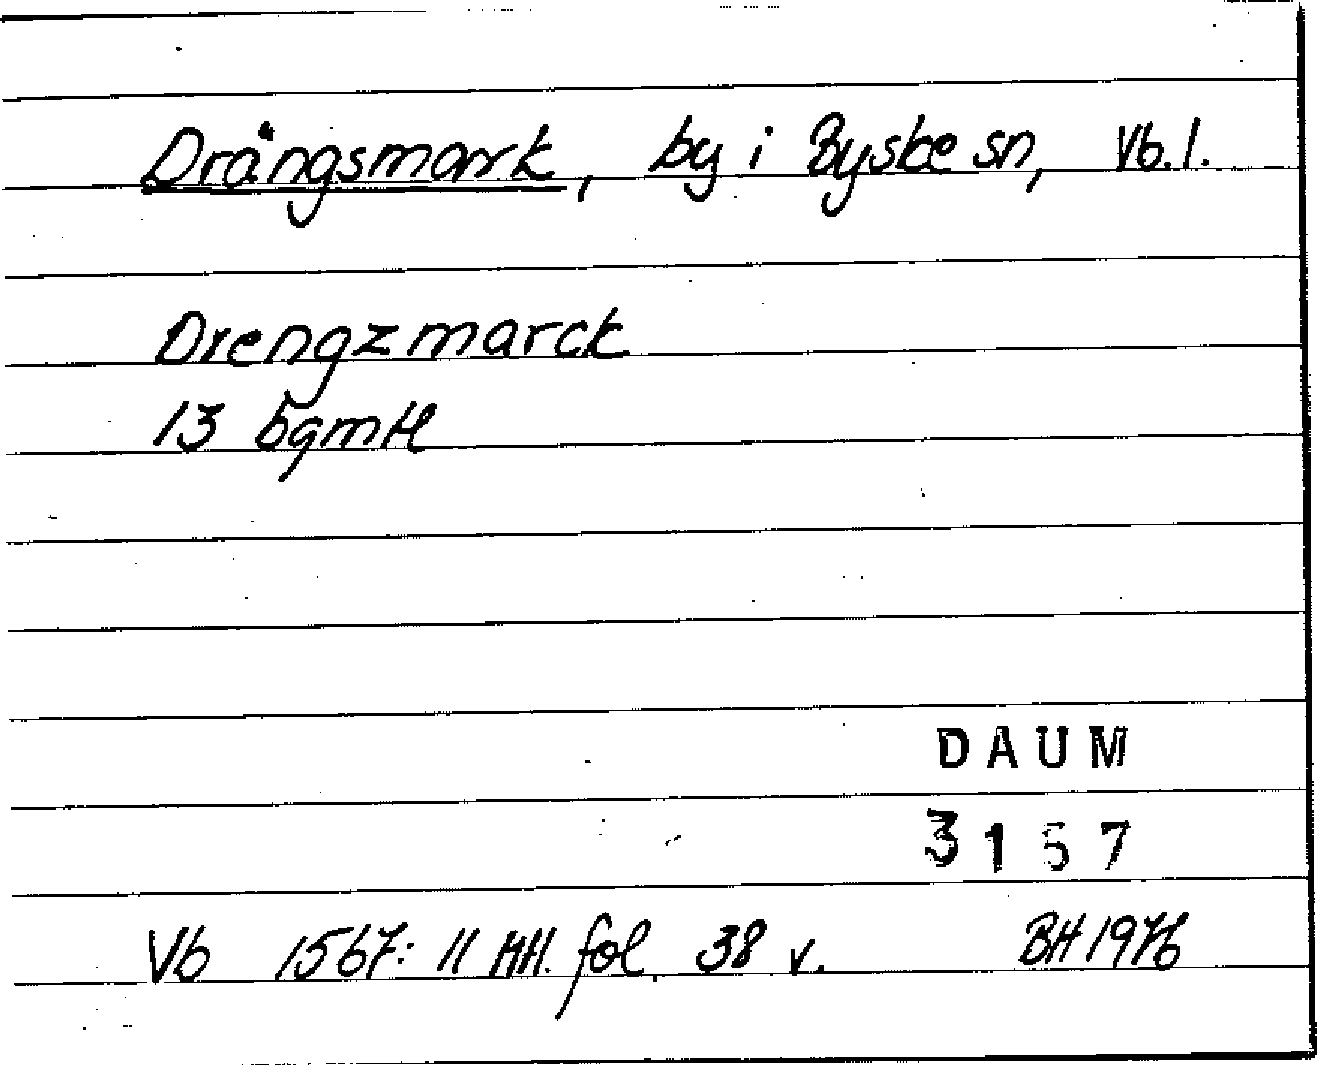 Drängsmark, by i Byske sn, Vb. l.
Drengzmarck
13 bgmtl
DAUM
3157
Vb 1567: 11 HH. fol. 38 v. BH 1976